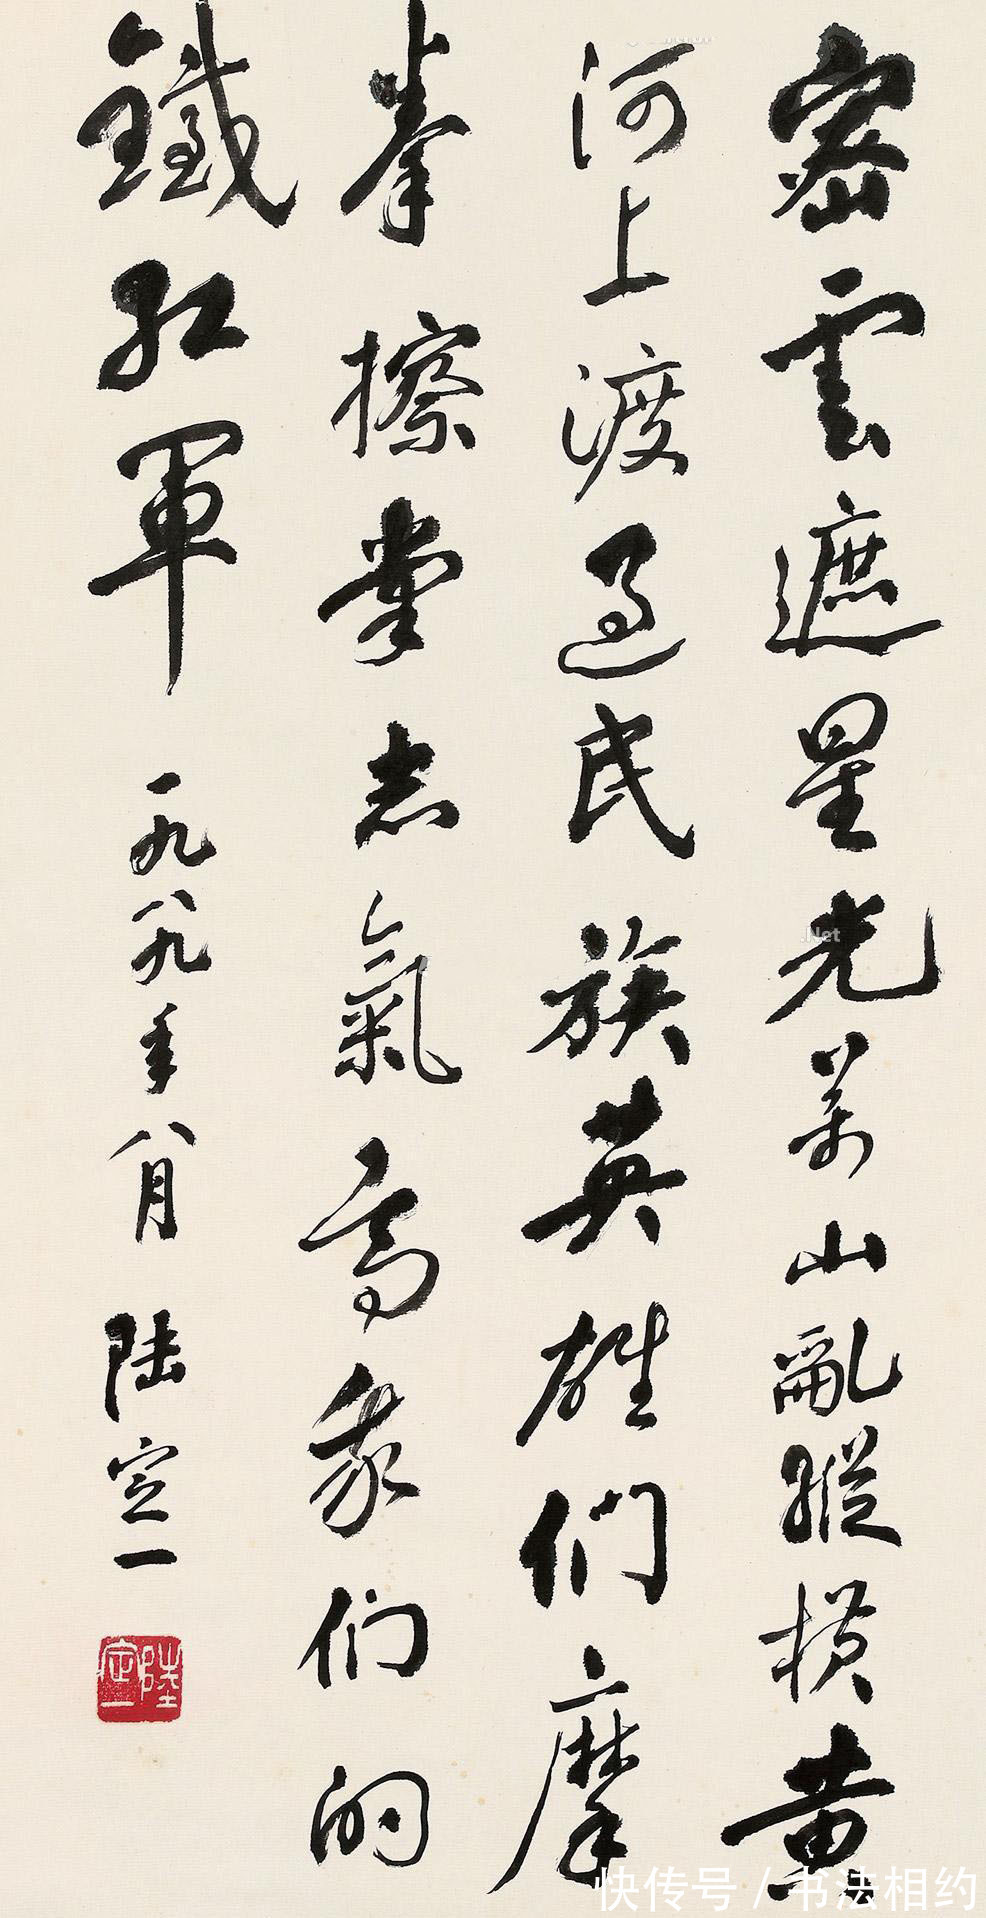 密雲遮星光萬山亂縱横黄
河上渡過民族英雄們摩
拳擦掌志氣高我们的
鐵红軍 一九八九年八月 陆定一
陸定一
.Net
快传号 / 书法相约